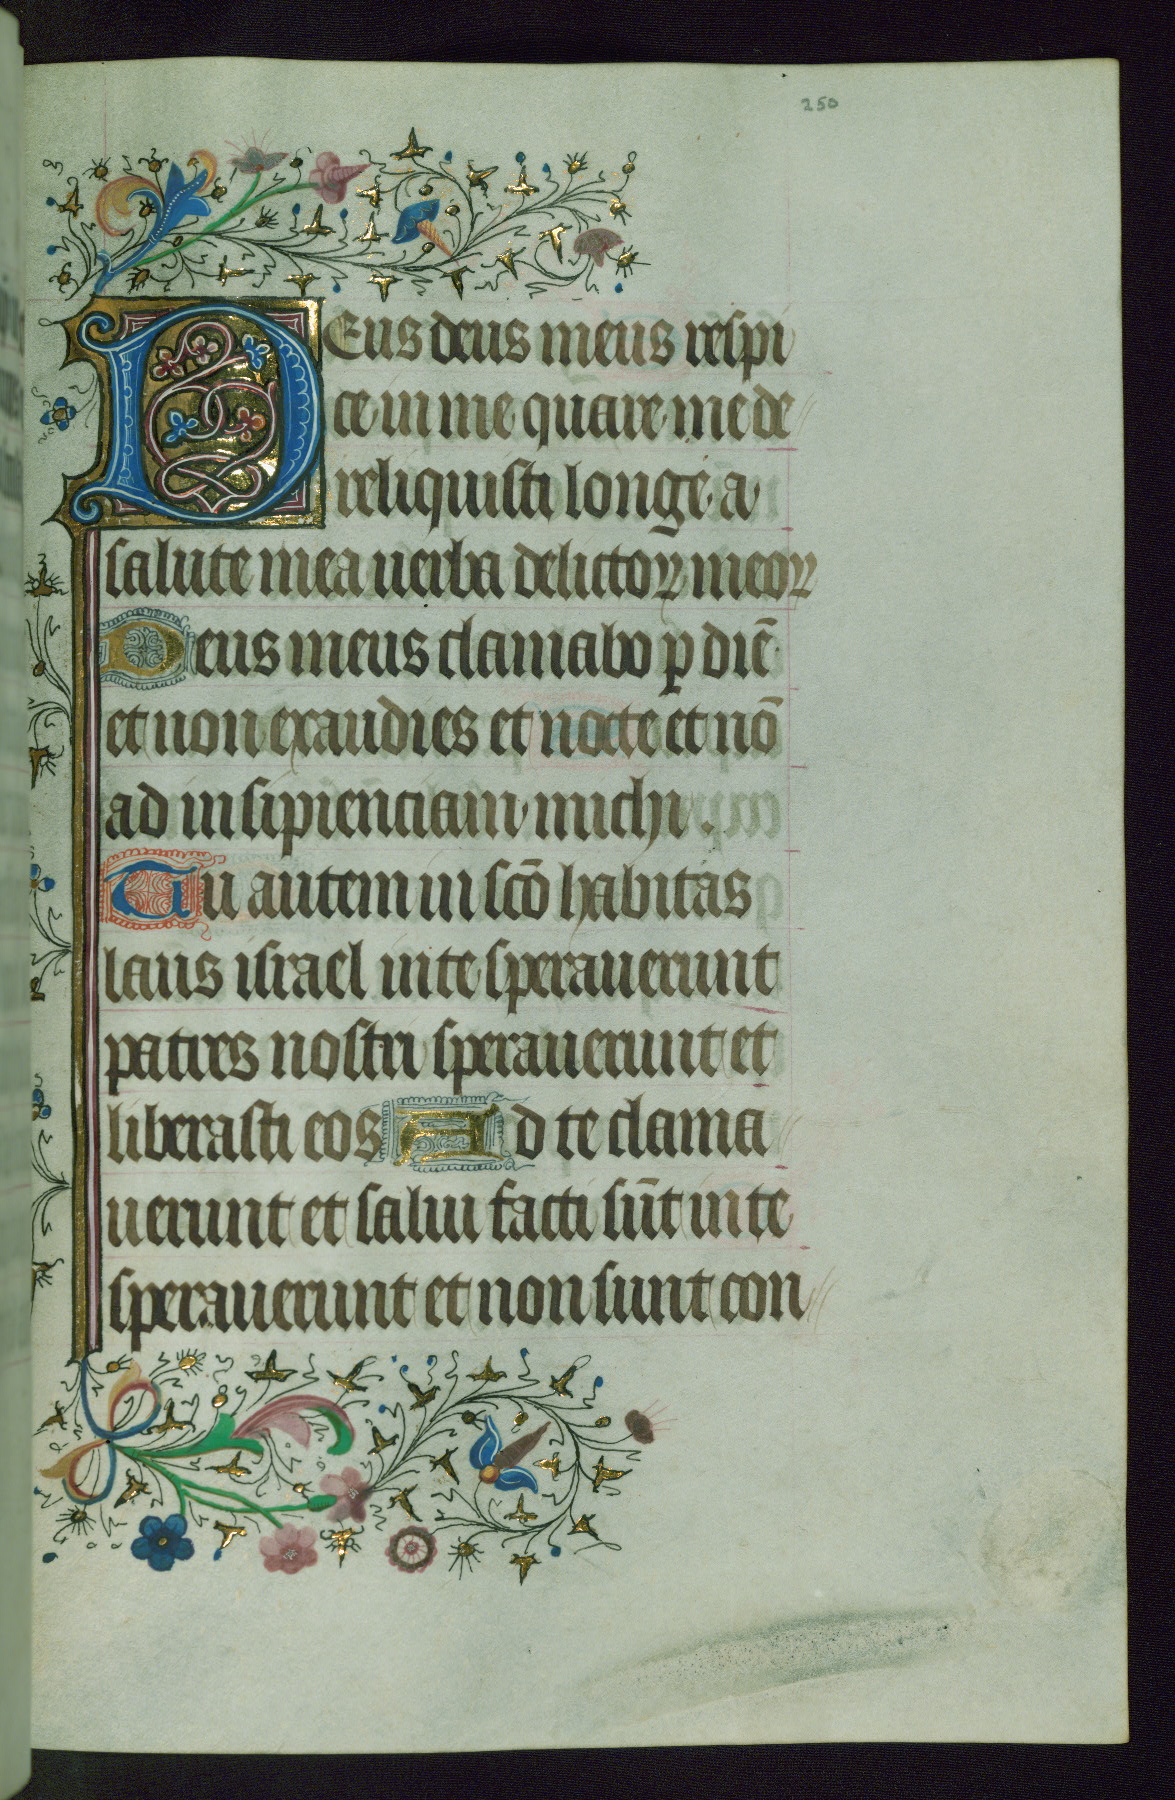 250
DEus deus meus respi
ce in me quare me de
reliquisti longe a
salute mea uerba delictoꝝ meoꝝ
Deus meus clamabo ꝑ diē
et non exaudies et nocte et nō
ad insipienciam michi.
Tu autem in scō habitas
laus israel in te sperauerunt
patres nostri sperauerunt et
liberasti eos Ad te clama
uerunt et salui facti sūt in te
sperauerunt et non sunt con